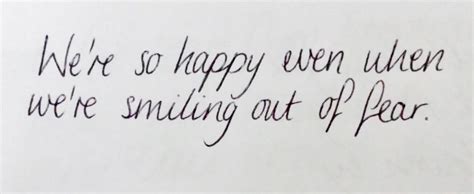 We're so happy even when
we're smiling out of fear.